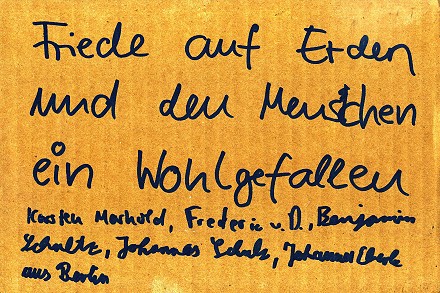 Friede auf Erden
und den Menschen
ein Wohlgefallen
Karsten Marhold, Frederic v. D., Benjamin
Schultz, Johannes Schulz, Johannes Eberle
aus Berlin